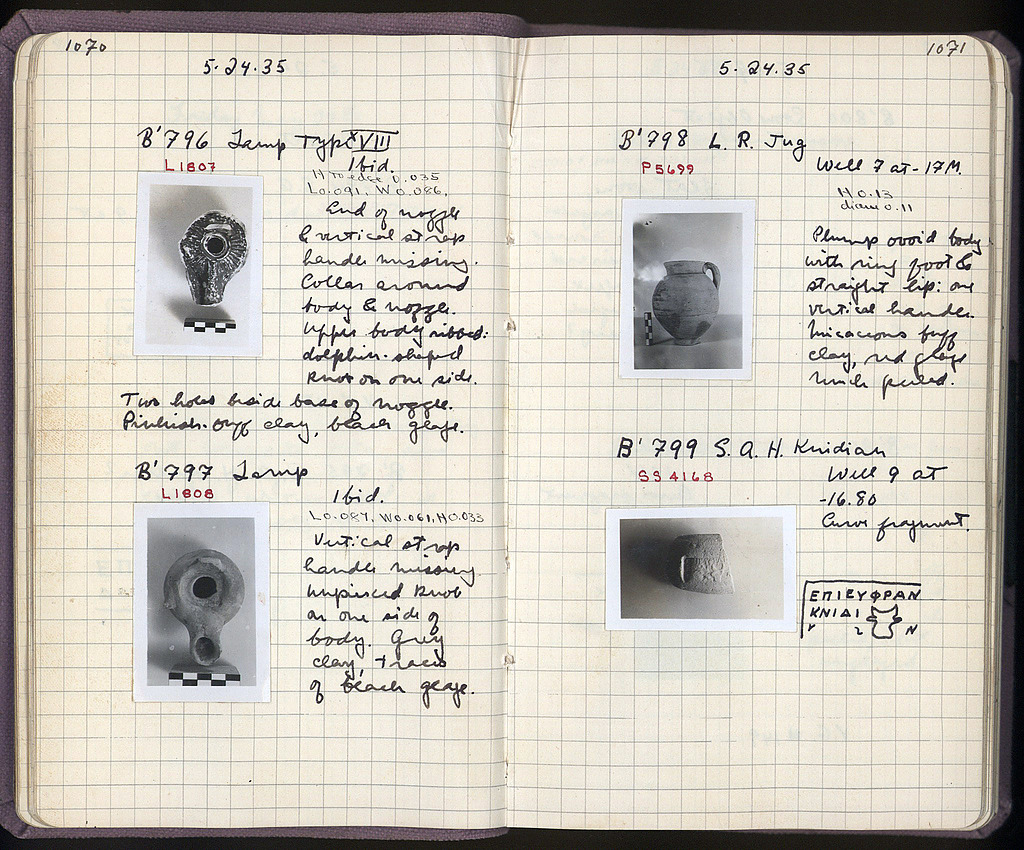 1070
5.24.35
B'796 Lamp Type XVIII
L1807
Ibid.
H to edge 0.035
L 0.091, W 0.086.
End of nozzle
& vertical strap
handle missing.
Collar around
body & nozzle.
Upper body ribbed:
dolphin-shaped
knob on one side.
Two holes beside base of nozzle.
Pinkish-buff clay, black glaze.
B'797 Lamp
L1808
Ibid.
L 0.087, W 0.061, H 0.033
Vertical strap
handle missing
Unpierced knob
on one side of
body. Grey
clay, traces
of black glaze.
1071
5.24.35
B'798 L. R. Jug
P5699
Well 7 at -17M.
H 0.13
diam 0.11
Plump ovoid body
with ring foot &
straight lip: one
vertical handle.
Micaceous buff
clay, red glaze
much peeled.
B'799 S. A. H. Knidian
SS 4168
Well 9 at
-16.80
Curve fragment.
ΕΠΙΕΥΦΡΑΝ
ΚΝΙΔΙ
Ν